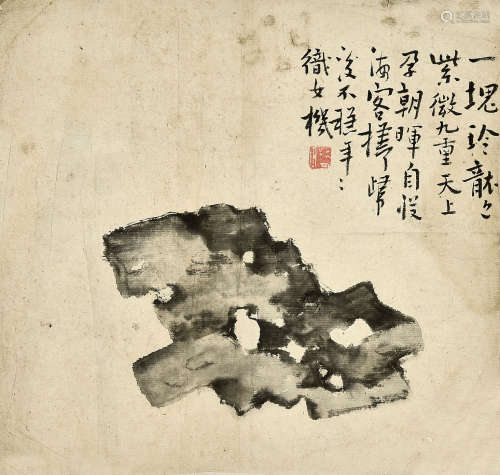 一塊玲瓏
紫微九重天上
孕朝暉自從
海客携歸
後不聽年〻
織女機